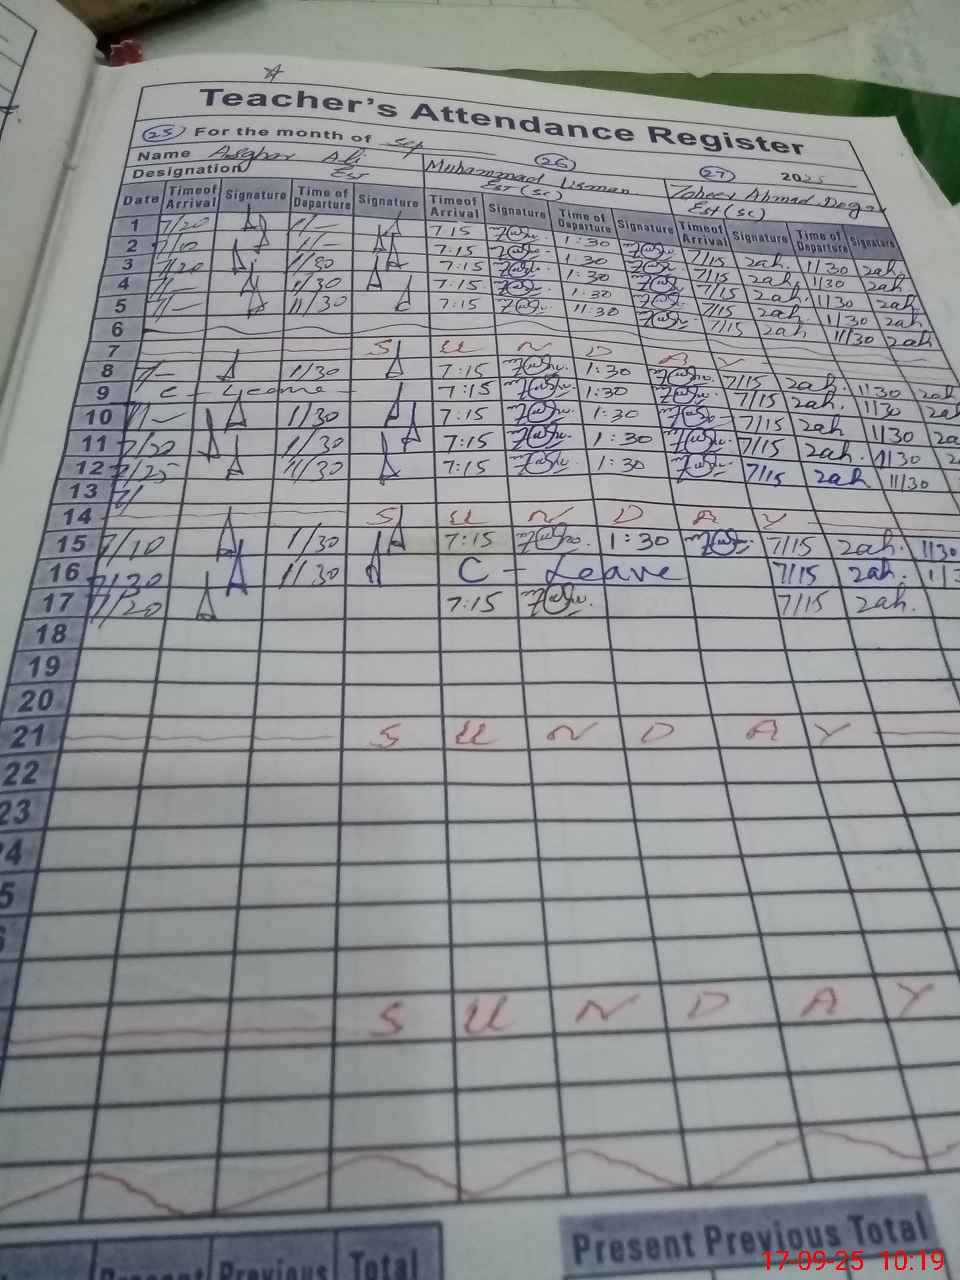 Teacher's Attendance Register
(25) For the month of Sep (26) (27) 2025
Name Asghar Ali Muhammad Usman Ahmad
Designation Est Est (SC) Est (SC)
Date Timeof Arrival Signature Time of Departure Signature Timeof Arrival Signature Time of Departure Signature Timeof Arrival Signature Time of Departure Signature
1 7/20 1/- 7 15 1:30 7/15 zah. 1/30 zah
2 7/10 1/- 7:15 1:30 7/15 zah 1/30 zah
3 7/20 1/30 7:15 1:30 7/15 zah. 1/30 zah
4 7/- 1/30 7:15 1:30 7/15 zah. 1/30 zah
5 7/- 11/30 7:15 11:30 7/15 zah 11/30 zah
6
7 S U N D A Y
8 7/- 1/30 7:15 1:30 7/15 zah. 1/30 zah
9 C - Leave 7:15 1:30 7/15 zah. 1/30
10 7/- 1/30 7:15 1:30 7/15 zah 1/30
11 7/20 1/30 7:15 1:30 7/15 zah. 1/30
12 7/25 11/30 7:15 1:30 7/15 zah 11/30
13
14 S U N D A Y
15 7/10 1/30 7:15 1:30 7/15 zah. 1/30
16 7/20 1/30 C - Leave 7/15 zah.
17 7/20 7:15 7/15 zah.
18
19
20
21 S U N D A Y
22
23
4
5
S U N D A Y
Present Previous Total Present Previous Total
17-09-25 10:19